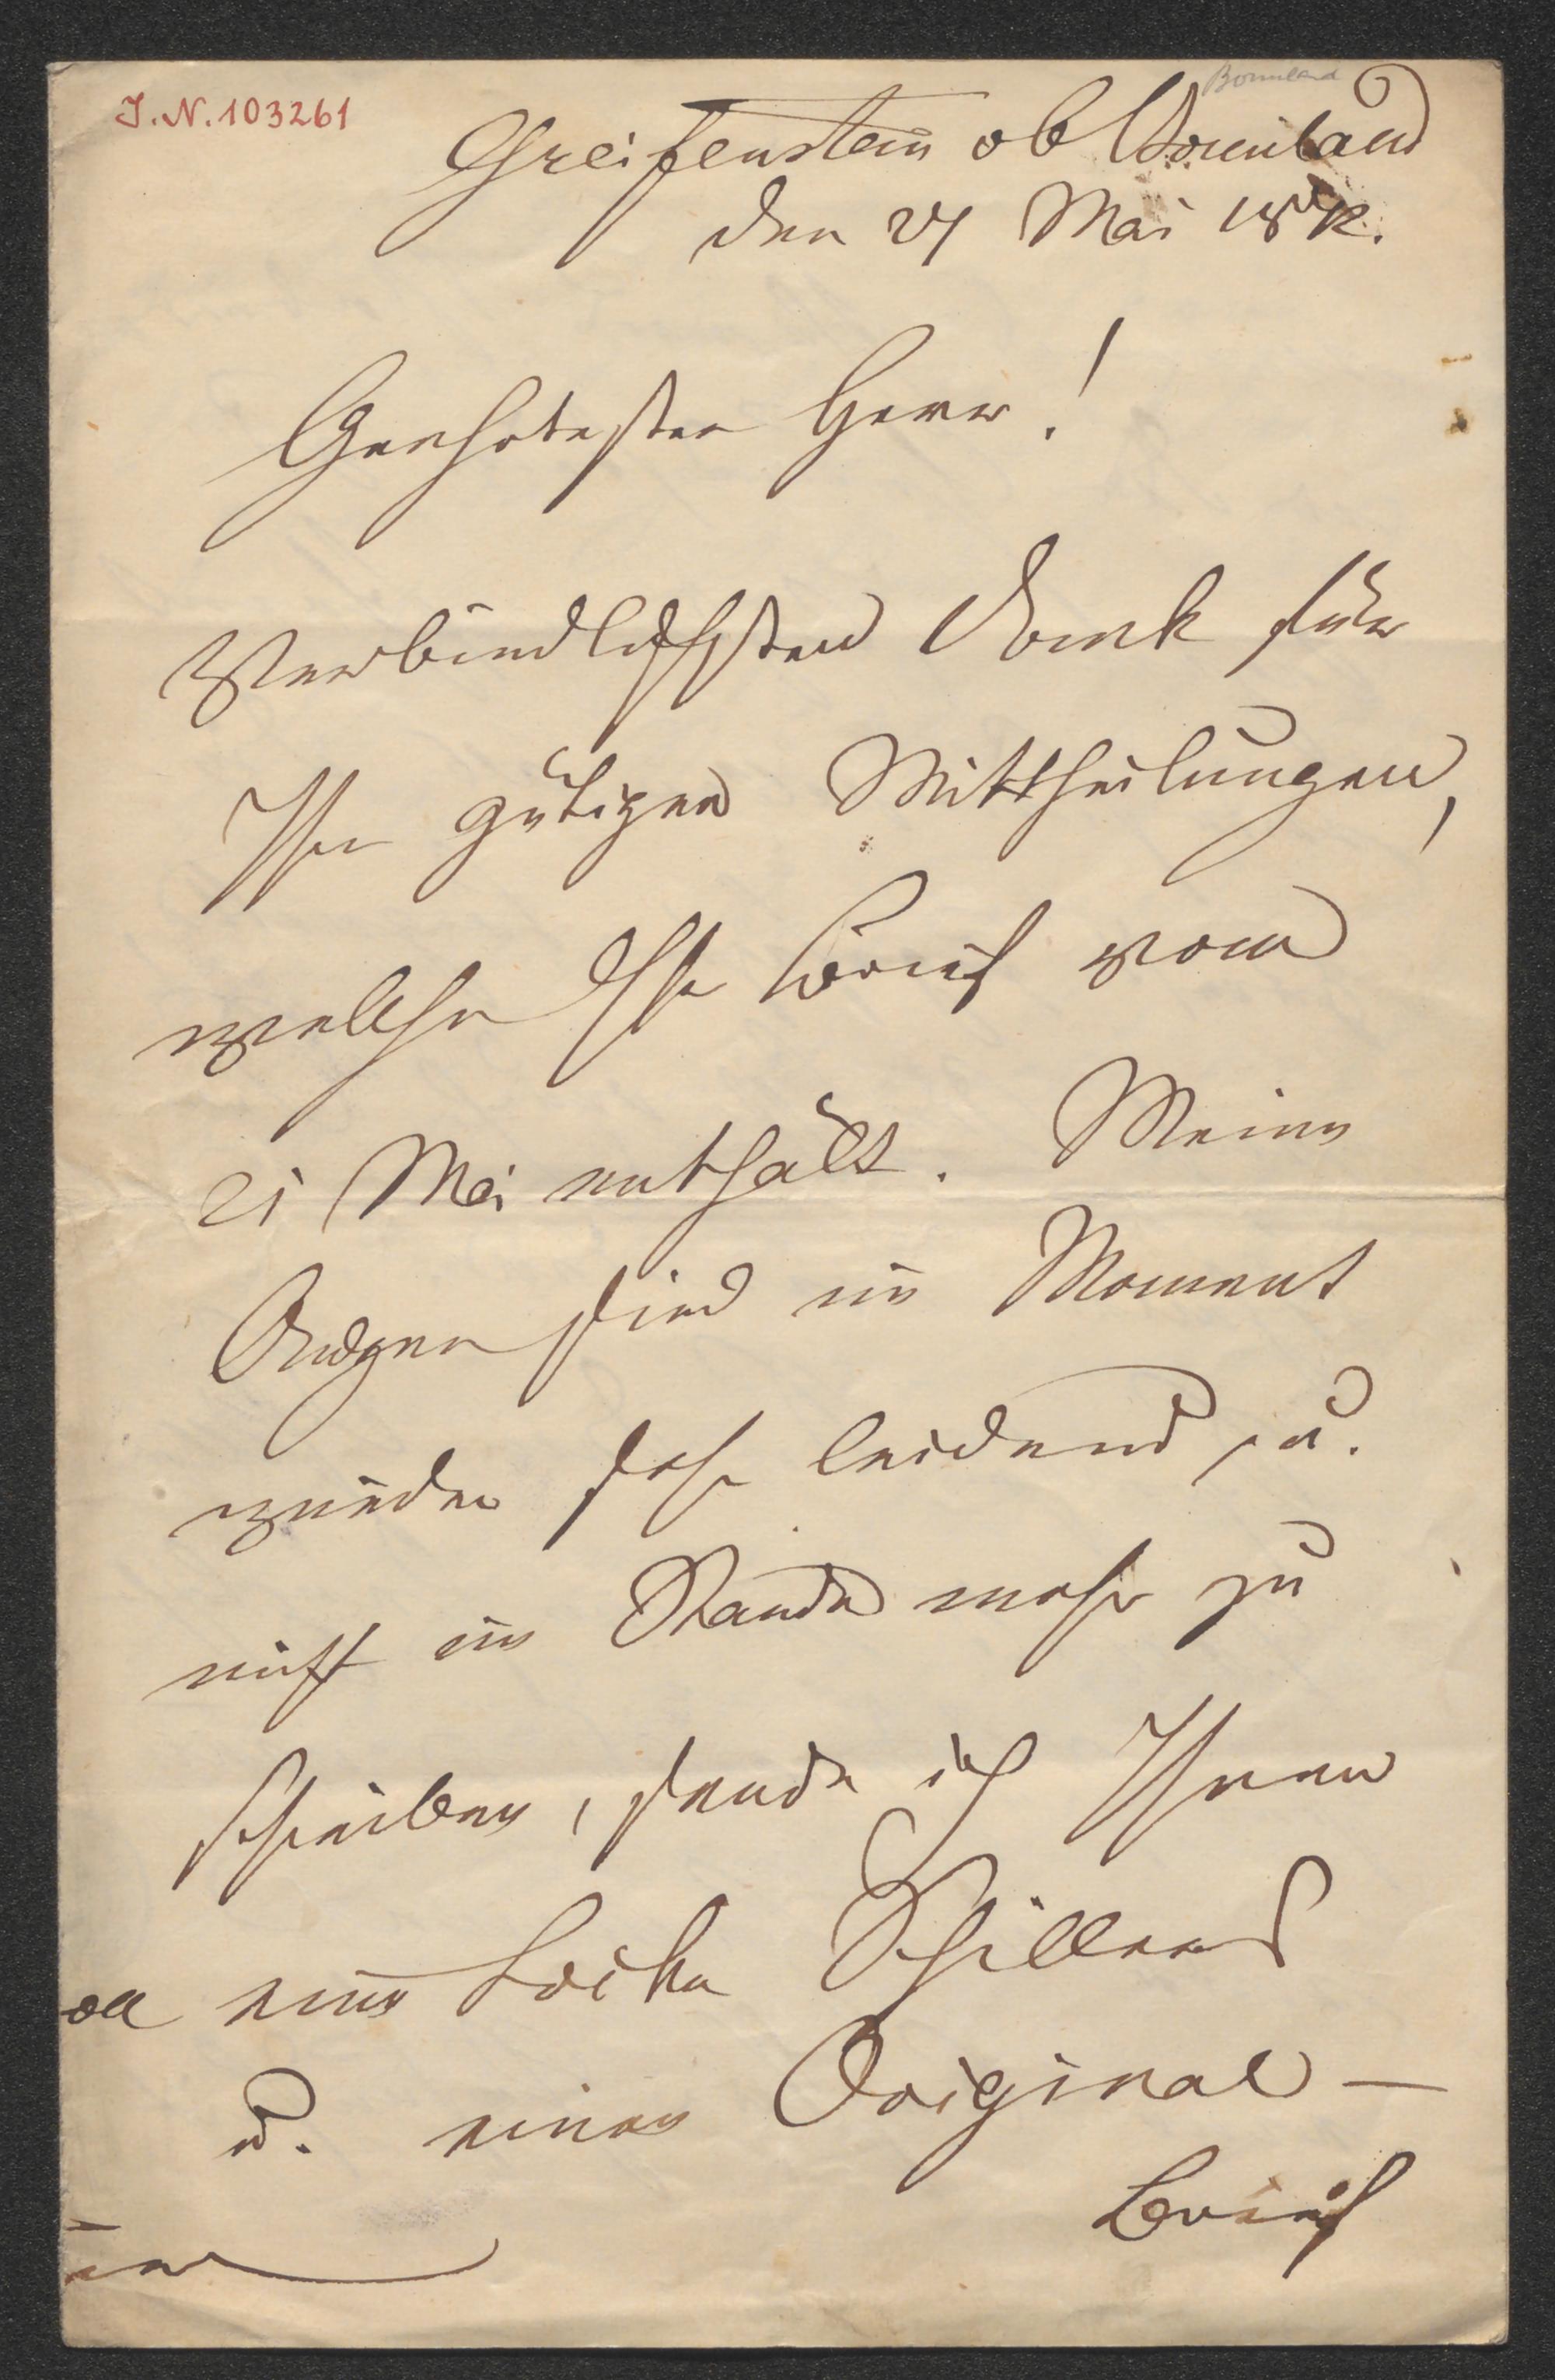 J.N.103261
Bonnland
Greifenstein ob Bonnland
den 24 Mai 1872.
Geehrtester Herr!
Verbindlichsten Dank für
Ihre gütigen Mittheilungen,
welche Ihr Brief vom
21 Mai enthält. Meine
Augen sind im Moment
wieder sehr leidend, u.
nicht im Stande mehr zu
schreiben, sende ich Ihnen
eine Locke Schillers
u. einen Original-
Brief